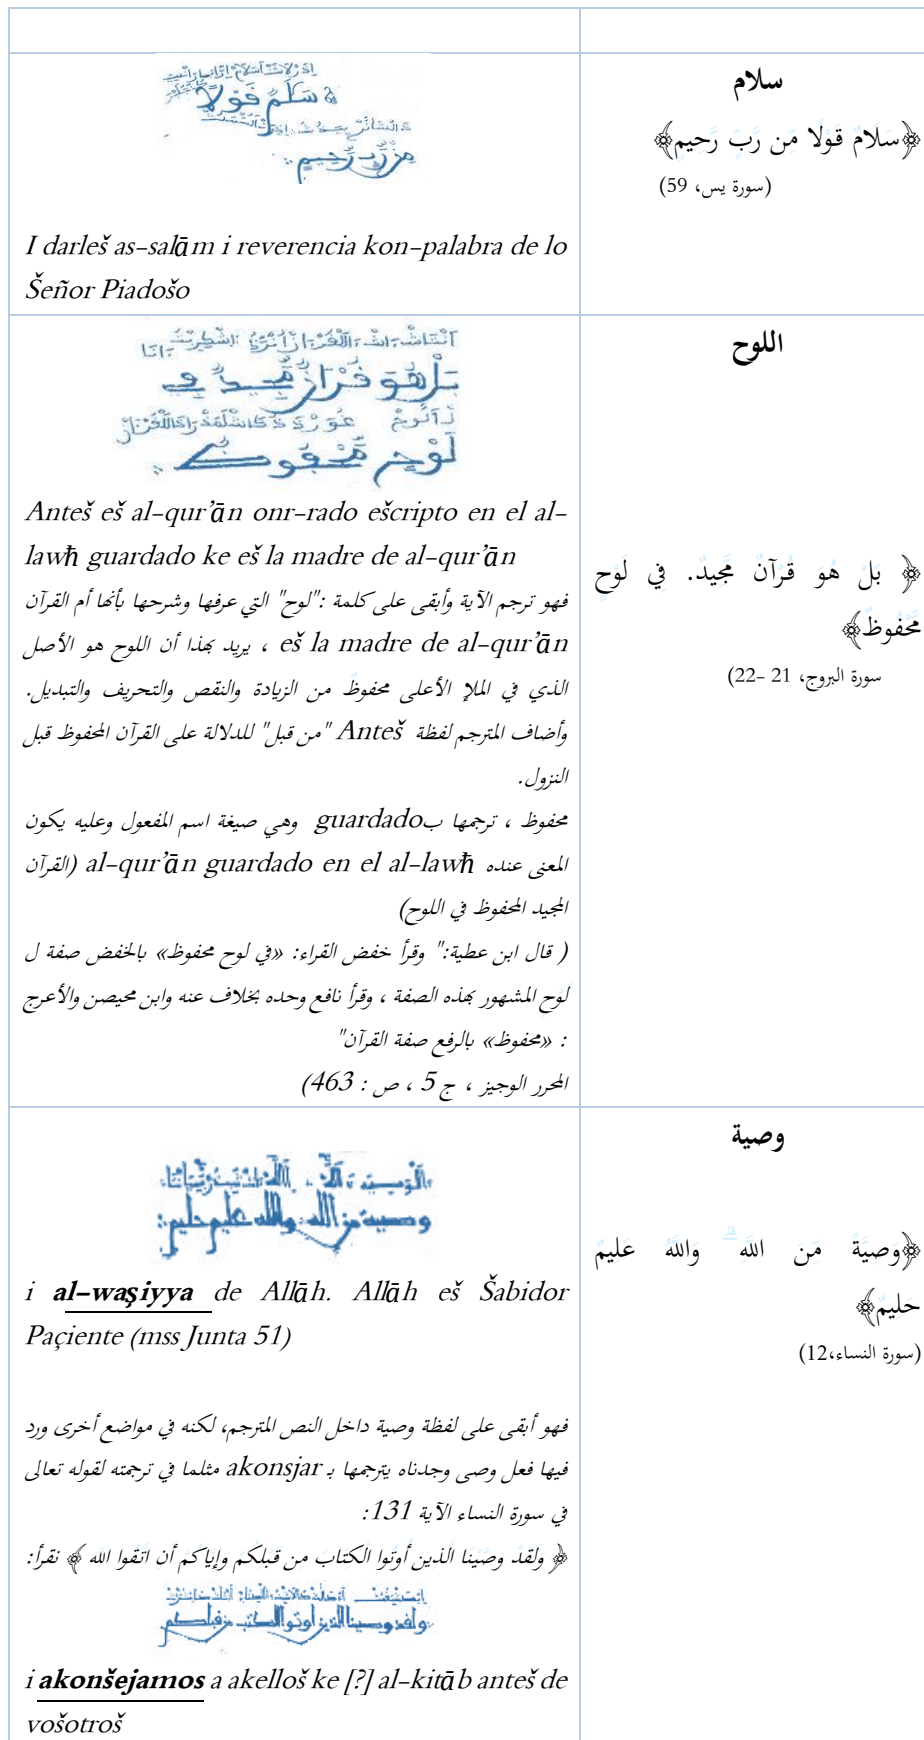 سلام
﴿سَلَامٌ قَوْلًا مِّن رَّبٍّ رَّحِيمٍ﴾
(سورة يس، 59)
سَلَٰمٌ قَوْلًا
مِن رَّبٍّ رَّحِيمٍ
I darleš as-salām i reverencia kon-palabra de lo
Šeñor Piadošo
اللوح
﴿ بَلْ هُوَ قُرْآنٌ مَّجِيدٌ. فِي لَوْحٍ
مَّحْفُوظٌ﴾
سورة البروج، 21 -22)
بَلْ هُوَ قُرْءَانٌ مَّجِيدٌ فِي
لَوْحٍ مَّحْفُوظٌ
Anteš eš al-qur’ān onr-rado ešcripto en el al-
lawħ guardado ke eš la madre de al-qur’ān
فهو ترجم الآية وأبقى على كلمة :"لوح" التي عرفها وشرحها بأنها أم القرآن
eš la madre de al-qur’ān ، يريد بهذا أن اللوح هو الأصل
الذي في الملإ الأعلى محفوظٌ من الزيادة والنقص والتحريف والتبديل.
وأضاف المترجم لفظة Anteš "من قبل" للدلالة على القرآن المحفوظ قبل
النزول.
محفوظ ، ترجمها بguardado وهي صيغة اسم المفعول وعليه يكون
المعنى عنده al-qur’ān guardado en el al-lawħ (القرآن
المجيد المحفوظ في اللوح)
( قال ابن عطية:" وقرأ خفض القراء: «في لوح محفوظ» بالخفض صفة ل
لوحٍ المشهور بهذه الصفة ، وقرأ نافع وحده بخلاف عنه وابن محيصن والأعرج
: «محفوظ» بالرفع صفة القرآن"
المحرر الوجيز ، ج 5 ، ص : 463)
وصية
﴿وَصِيَّةً مِّنَ اللَّهِ ۗ وَاللَّهُ عَلِيمٌ
حَلِيمٌ﴾
(سورة النساء،12)
وصية من الله والله عليم حليم
i al-waṣiyya de Allāh. Allāh eš Šabidor
Paçiente (mss Junta 51)
فهو أبقى على لفظة وصية داخل النص المترجم، لكنه في مواضع أخرى ورد
فيها فعل وصى وجدناه يترجمها بـ akonsjar مثلما في ترجمته لقوله تعالى
في سورة النساء الآية 131:
﴿ ولقدْ وصَّيْنا الَّذين أُوتُوا الْكتابَ من قبلكُمْ وإياكمْ أن اتَّقُوا الله ﴾ نقرأ:
ولقد وصينا الذين اوتوا الكتب من قبلكم
i akonšejamos a akelloš ke [?] al-kitāb anteš de
vošotroš